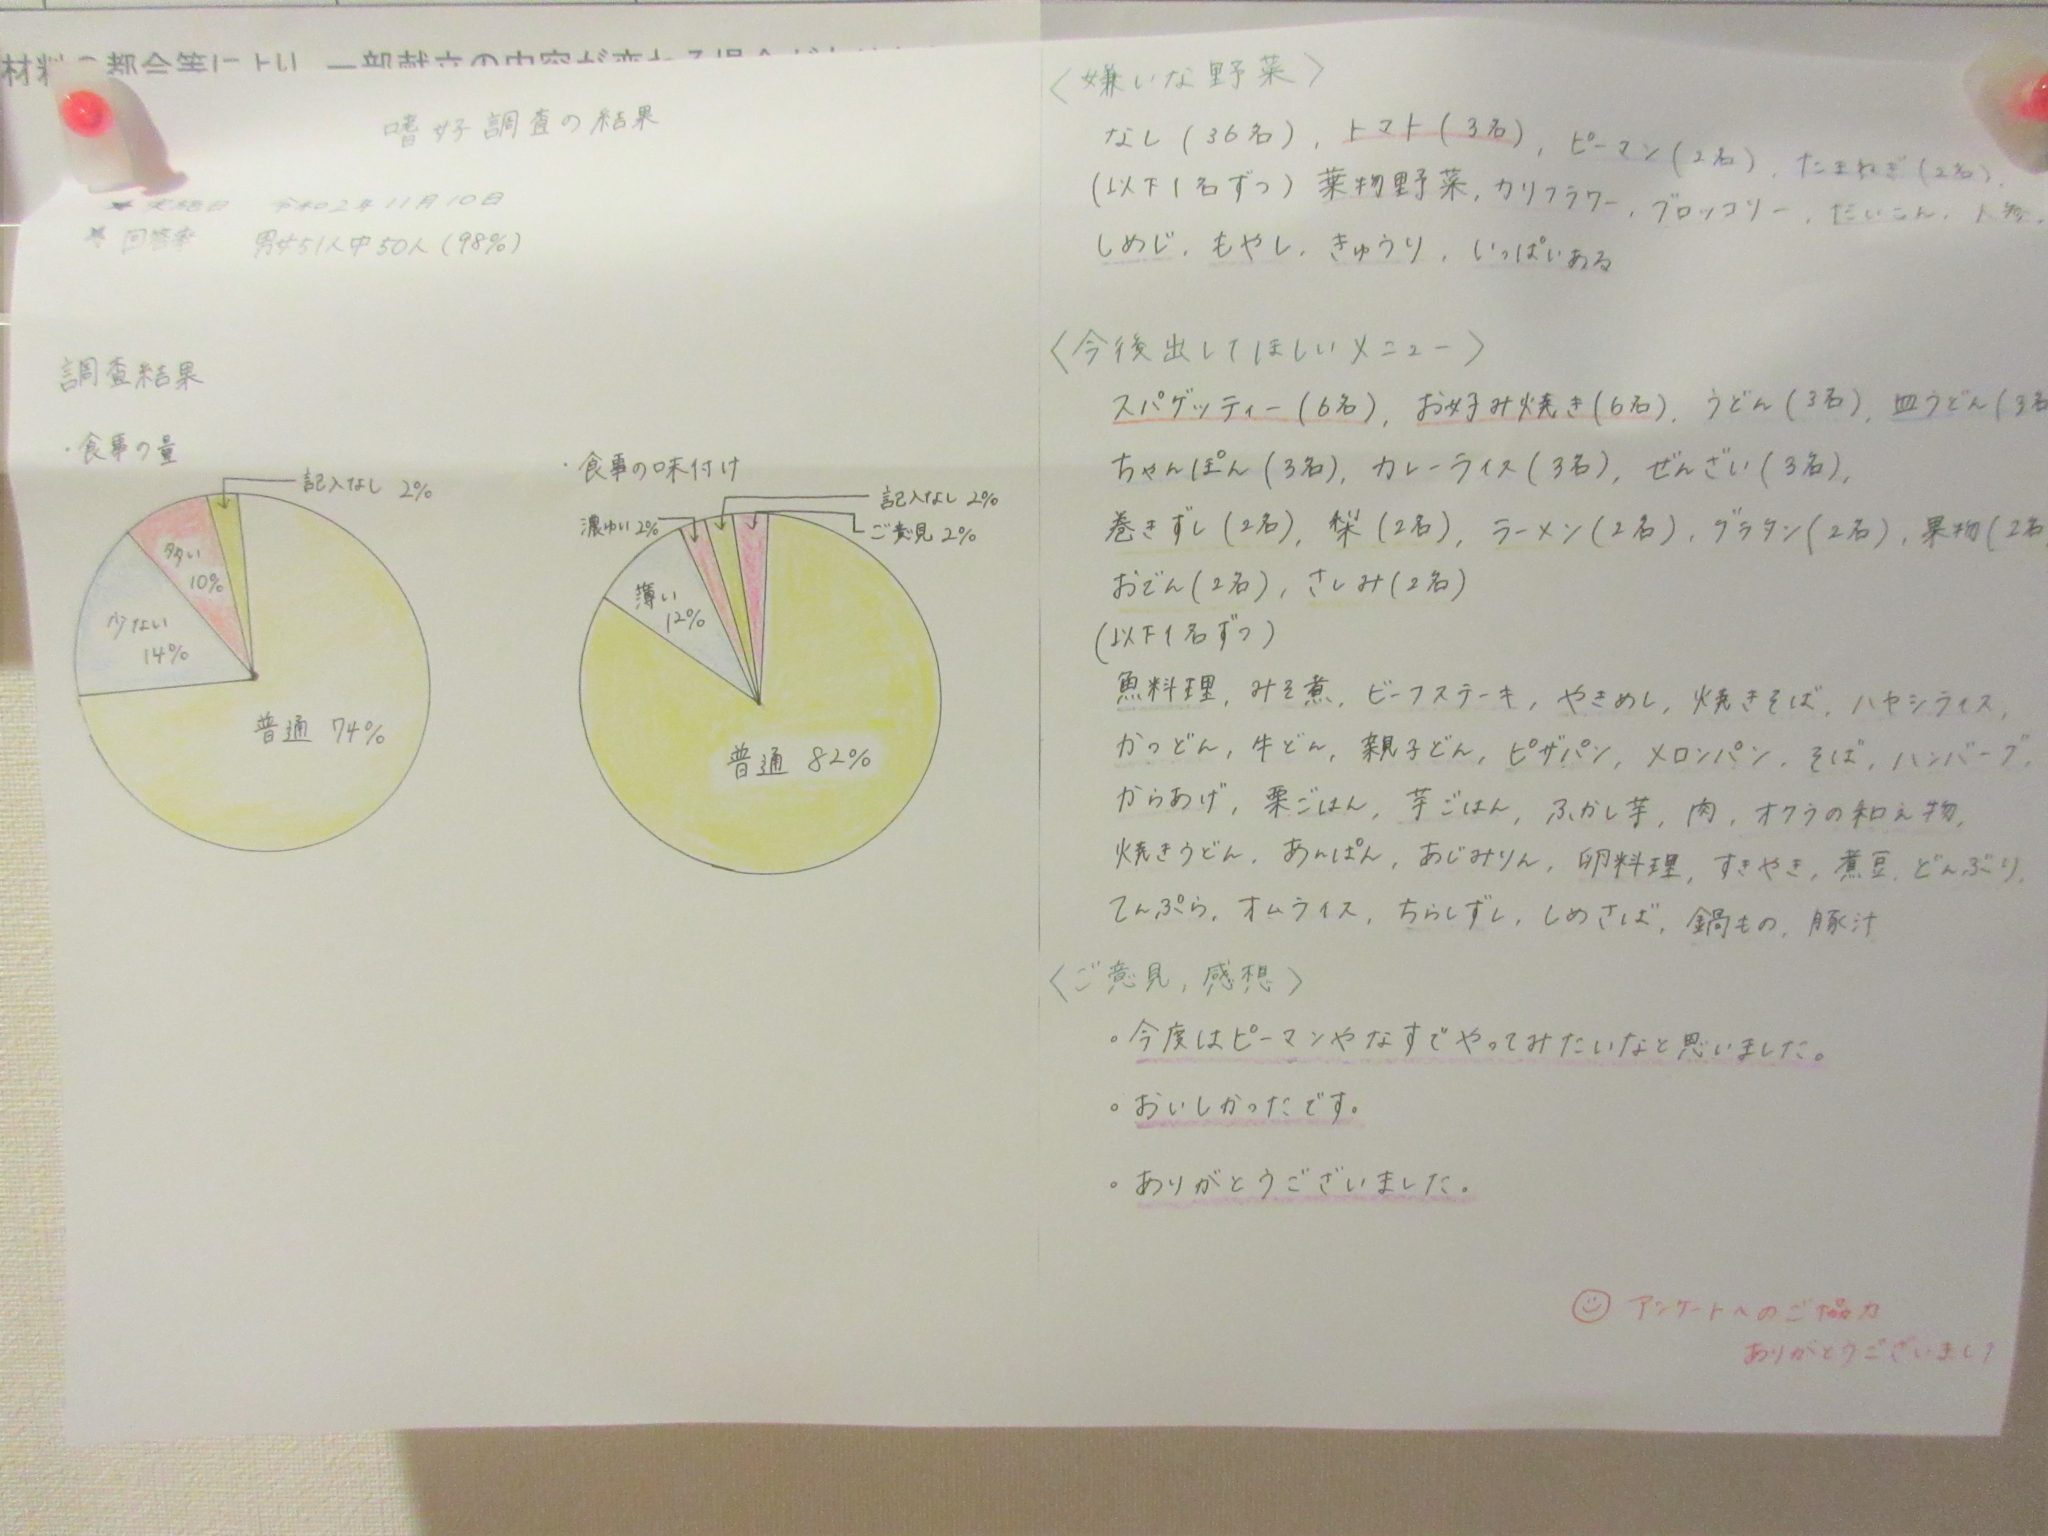 材料の都合等により、一部献立の内容が変わる場合が
嗜好調査の結果
★ 実施日 令和2年11月10日
★ 回答率 男女51人中50人(98%)
調査結果
・食事の量
記入なし 2%
多い 10%
少ない 14%
普通 74%
・食事の味付け
記入なし 2%
濃ゆい 2%
ご意見 2%
薄い 12%
普通 82%
〈嫌いな野菜〉
なし(36名), トマト(3名), ピーマン(2名), たまねぎ(2名),
(以下1名ずつ) 葉物野菜, カリフラワー, ブロッコリー, だいこん, 人参,
しめじ, もやし, きゅうり, いっぱいある
〈今後出してほしいメニュー〉
スパゲッティー(6名), お好み焼き(6名), うどん(3名), 皿うどん(3名
ちゃんぽん(3名), カレーライス(3名), ぜんざい(3名),
巻きずし(2名), 梨(2名), ラーメン(2名), グラタン(2名), 果物(2名
おでん(2名), さしみ(2名)
(以下1名ずつ)
魚料理, みそ煮, ビーフステーキ, やきめし, 焼きそば, ハヤシライス,
かつどん, 牛どん, 親子どん, ピザパン, メロンパン, そば, ハンバーグ,
からあげ, 栗ごはん, 芋ごはん, ふかし芋, 肉, オクラの和え物,
焼きうどん, あんぱん, あじみりん, 卵料理, すきやき, 煮豆, どんぶり,
てんぷら, オムライス, ちらしずし, しめさば, 鍋もの, 豚汁
〈ご意見, 感想〉
。今度はピーマンやなすでやってみたいなと思いました。
。おいしかったです。
。ありがとうございました。
アンケートへのご協力
ありがとうございまし